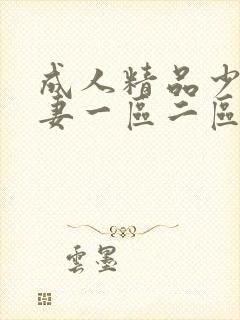 成人精品少
妻一區二區
雲墨